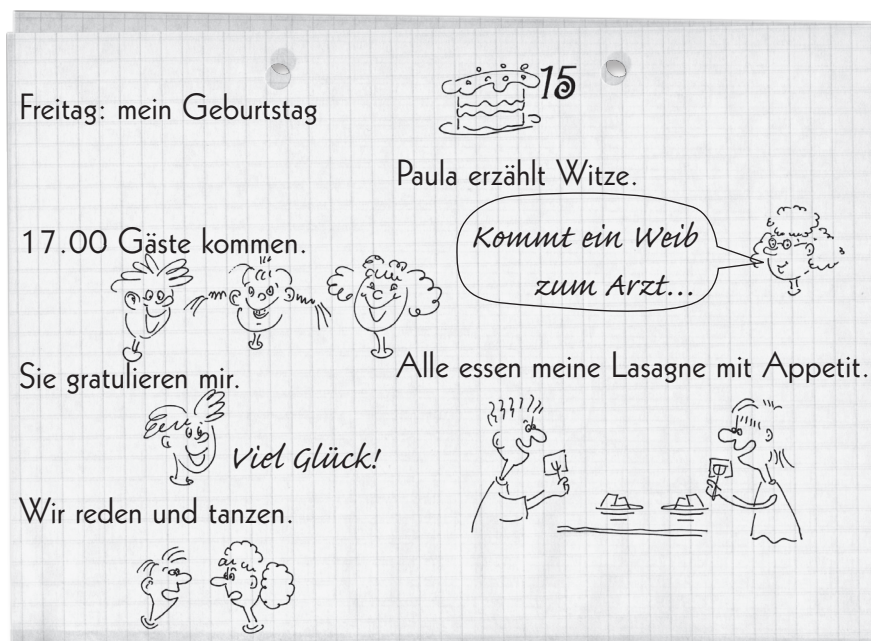 Freitag: mein Geburtstag
17.00 Gäste kommen.
Sie gratulieren mir.
Viel Glück!
Wir reden und tanzen.
15
Paula erzählt Witze.
Kommt ein Weib
zum Arzt...
Alle essen meine Lasagne mit Appetit.